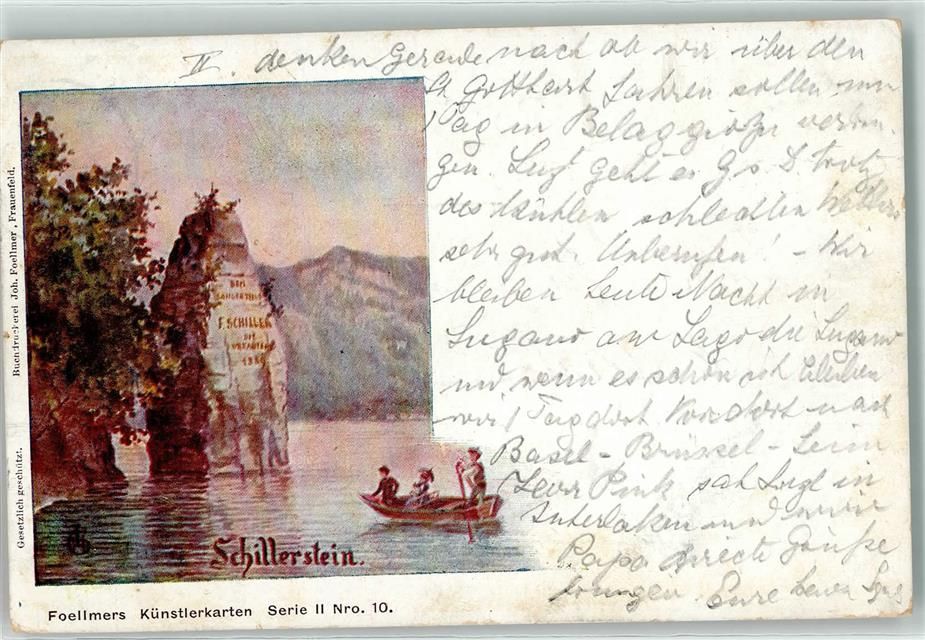 II. denken gerade nach ob wir über den
St. Gotthart fahren sollen um
1 Tag in Belaggio zu verbrin-
gen. geht es G. s. D. trotz
des kühlen schlechten Wetters
sehr gut. Unberufen! – Wir
bleiben heute Nacht in
Lugano am Lago di Lugano
und wenn es schön ist bleiben
wir 1 Tag dort. Von dort nach
Basel – Brüssel –
Herr Pink in
Interlaken und wir
Papa directe Grüße
bringen. Eure
DEM
F. SCHILLER
DIE
URKANTONE
Schillerstein.
Foellmers Künstlerkarten Serie II Nro. 10.
Gesetzlich geschützt.
Buchdruckerei Joh. Foellmer, Frauenfeld.